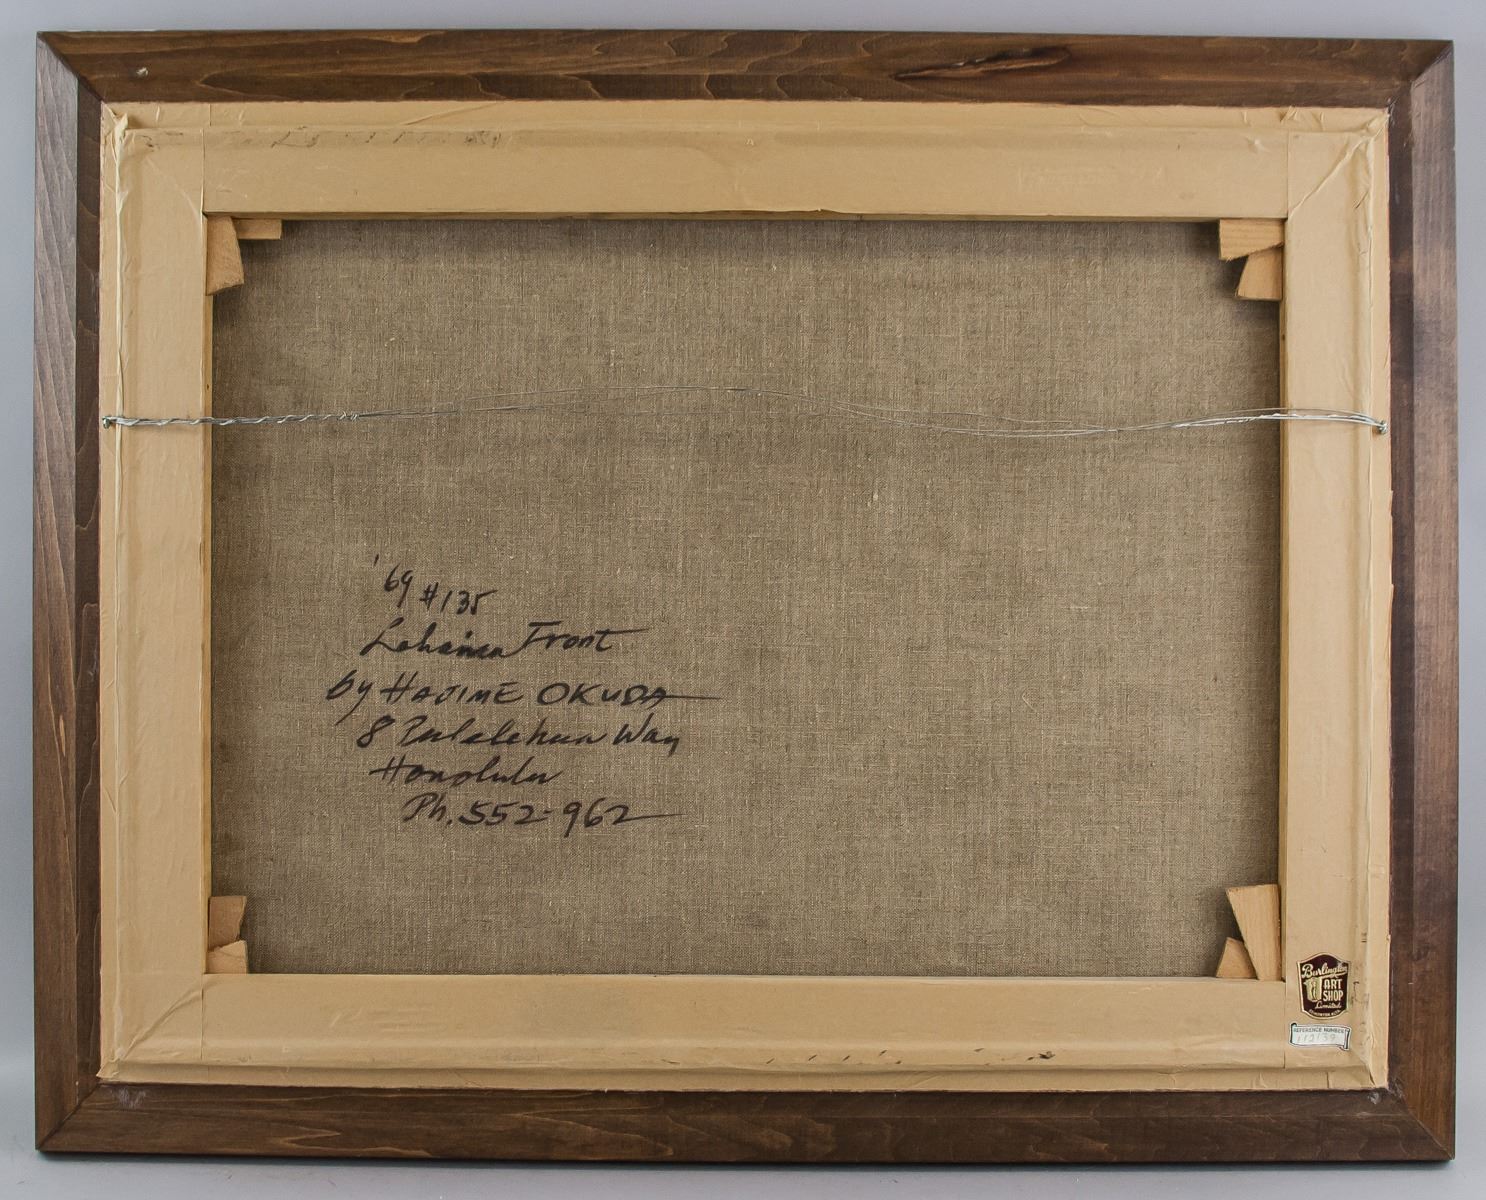 '69 #135
Lahaina Front
by HAJIME OKUDA
8 Way
Honolulu
Ph. 552-962
Burlington
ART
SHOP
Limited
REFERENCE NUMBER
112139